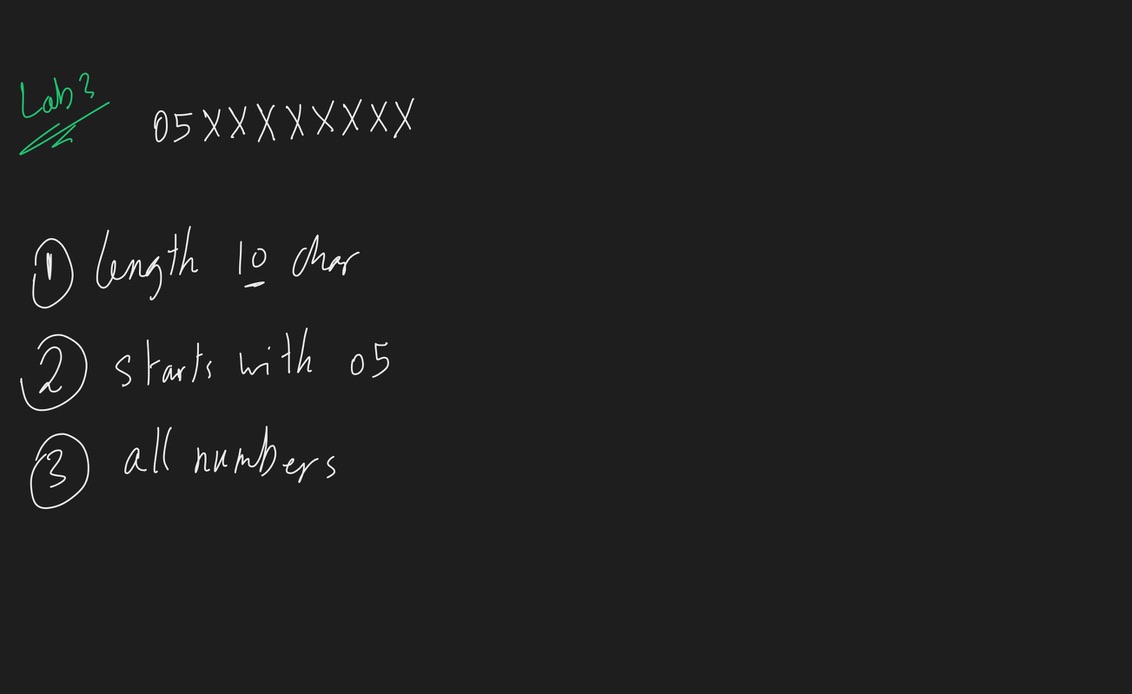 Lab 3
05XXXXXXXX
① length 10 char
② starts with 05
③ all numbers